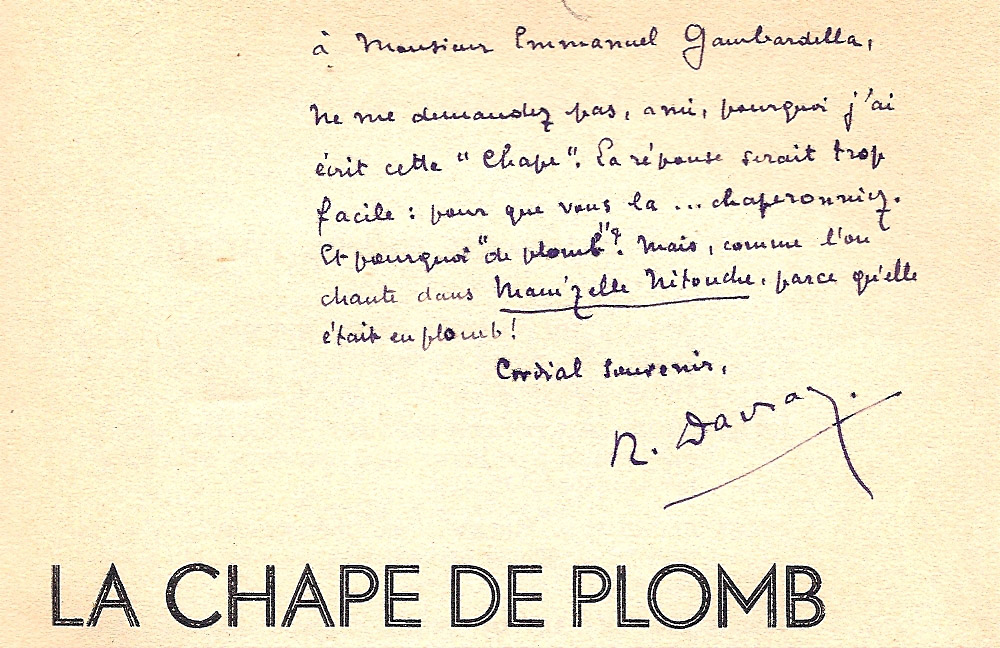 à Monsieur Emmanuel Gambardella,
Ne me demandez pas, ami, pourquoi j'ai
écrit cette "Chape". La réponse serait trop
facile : pour que vous la ... chaperonniez.
Et pourquoi "de plomb"? Mais, comme l'on
chante dans Mam'zelle Nitouche, parce qu'elle
était en plomb!
Cordial souvenir,
R. Davray.
LA CHAPE DE PLOMB